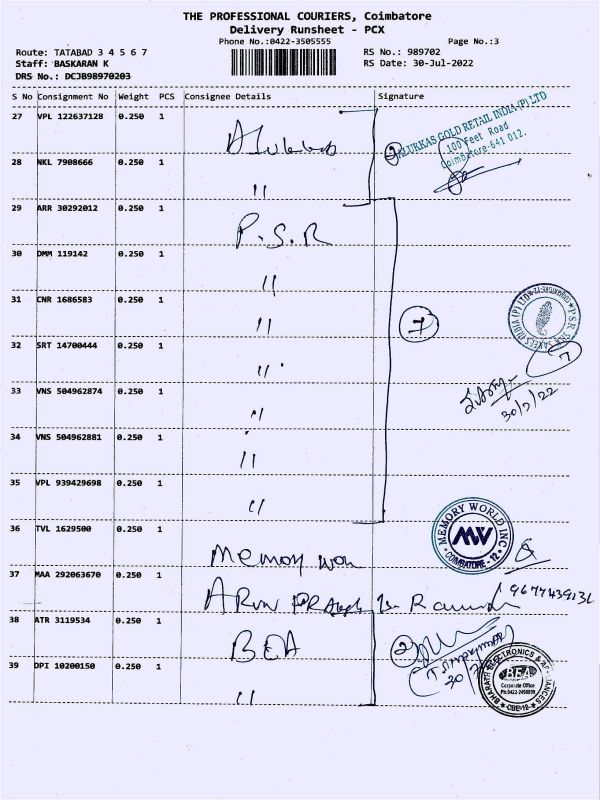 THE PROFESSIONAL COURIERS, Coimbatore
Delivery Runsheet - PCX
Phone No.:0422-3505555
Page No.:3
Route: TATABAD 3 4 5 6 7
RS No.: 989702
Staff: BASKARAN K
RS Date: 30-Jul-2022
DRS No.: DCJB98970203
S No Consignment No Weight PCS Consignee Details Signature
27 VPL 122637128 0.250 1
ALUKKAS GOLD RETAIL INDIA (P) LTD
100 Feet Road
Coimbatore-641 012.
2
28 NKL 7908666 0.250 1 "
29 ARR 30292012 0.250 1 P.S.R
30 DMM 119142 0.250 1 "
31 CNR 1686583 0.250 1 "
7
32 SRT 14700444 0.250 1 "
7
33 VNS 504962874 0.250 1 "
30/7/22
34 VNS 504962881 0.250 1 "
35 VPL 939429698 0.250 1 "
36 TVL 1629500 0.250 1 Memory wor
MEMORY WORLD INC
MW
COIMBATORE - 12
37 MAA 292063670 0.250 1 ARUN
38 ATR 3119534 0.250 1 BEA
2
39 DPI 10200150 0.250 1 "
BHARATH ELECTRONICS & APPLIANCES
BEA
Corporate Office
CBE-12